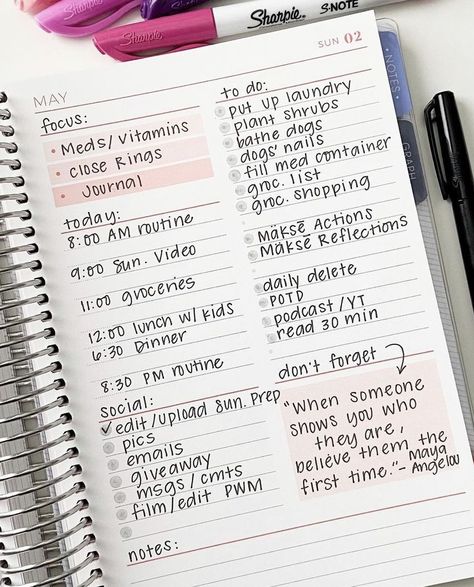 Sharpie
Sharpie
Sharpie S·NOTE
MAY
SUN 02
focus:
Meds/Vitamins
Close Rings
Journal
today:
8:00 AM routine
9:00 Sun. Video
11:00 groceries
12:00 lunch w/ kids
6:30 Dinner
8:30 PM routine
social:
edit/upload Sun. Prep
pics
emails
giveaway
msgs/cmts
film/edit PWM
notes:
to do:
put up laundry
plant shrubs
bathe dogs
dogs' nails
fill med container
groc. list
groc. shopping
Māksē Actions
Māksē Reflections
daily delete
POTD
podcast/YT
read 30 min
don't forget
"When someone
shows you who
they are,
believe them the
first time."- Maya
Angelou
NOTES
GRAPH
Sharpie